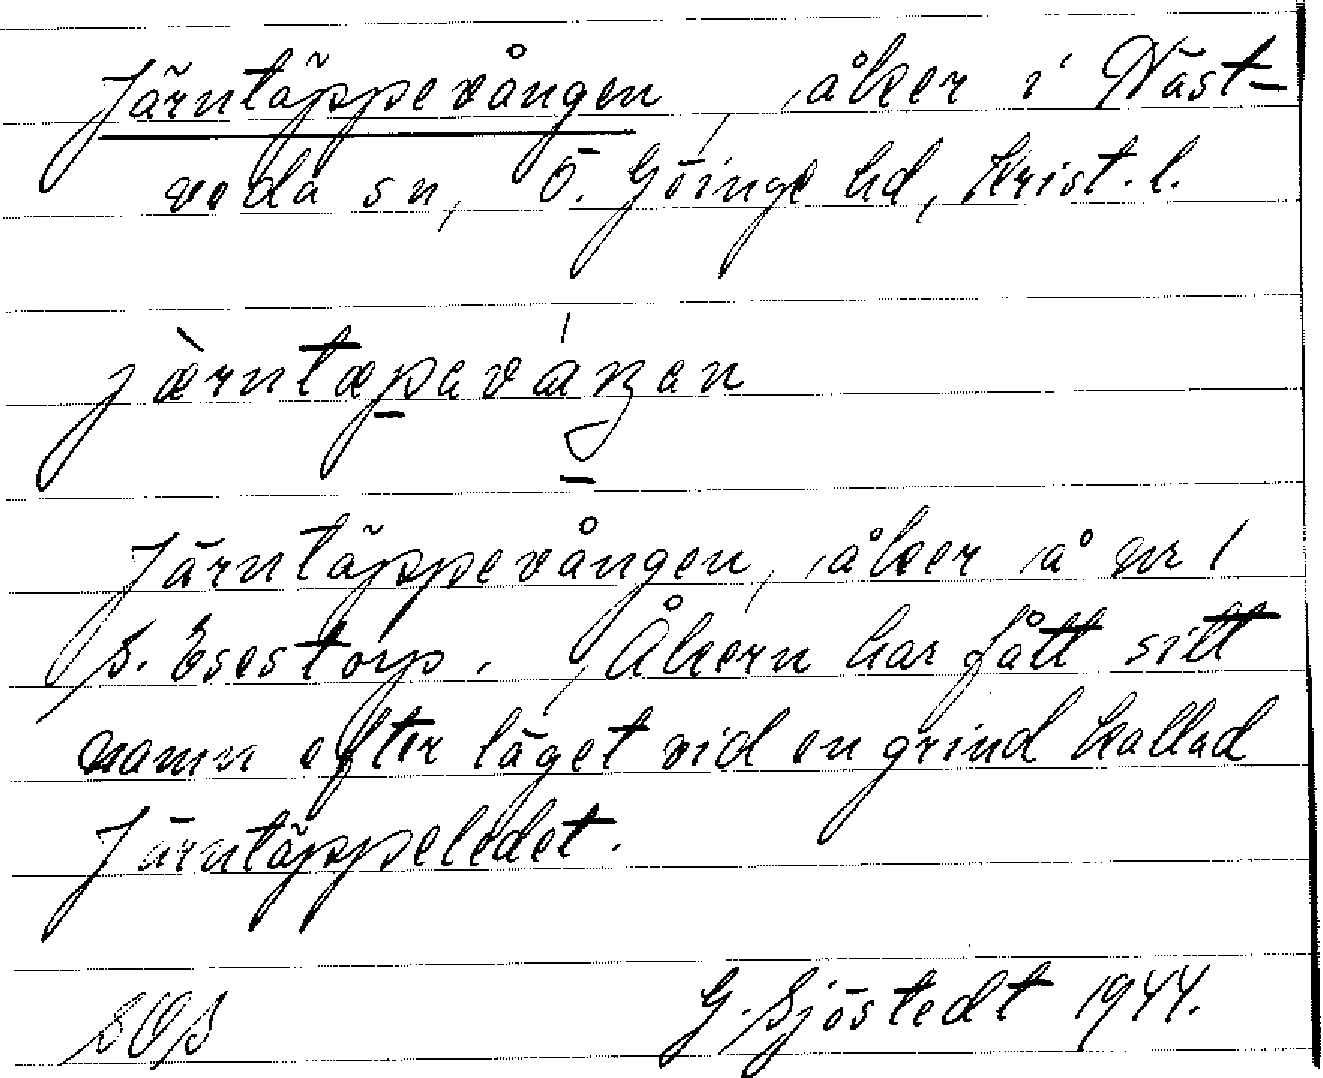 Järntäppevången, åker i Näst-
veda sn, Ö. Göinge hd, Krist. l.
jæ̀rntæpaváŋan
Järntäppevången, åker å nr 1
S. Esestorp. Åkern har fått sitt
namn efter läget vid en grind kallad
Järntäppeledet.
SOS G. Sjöstedt 1944.